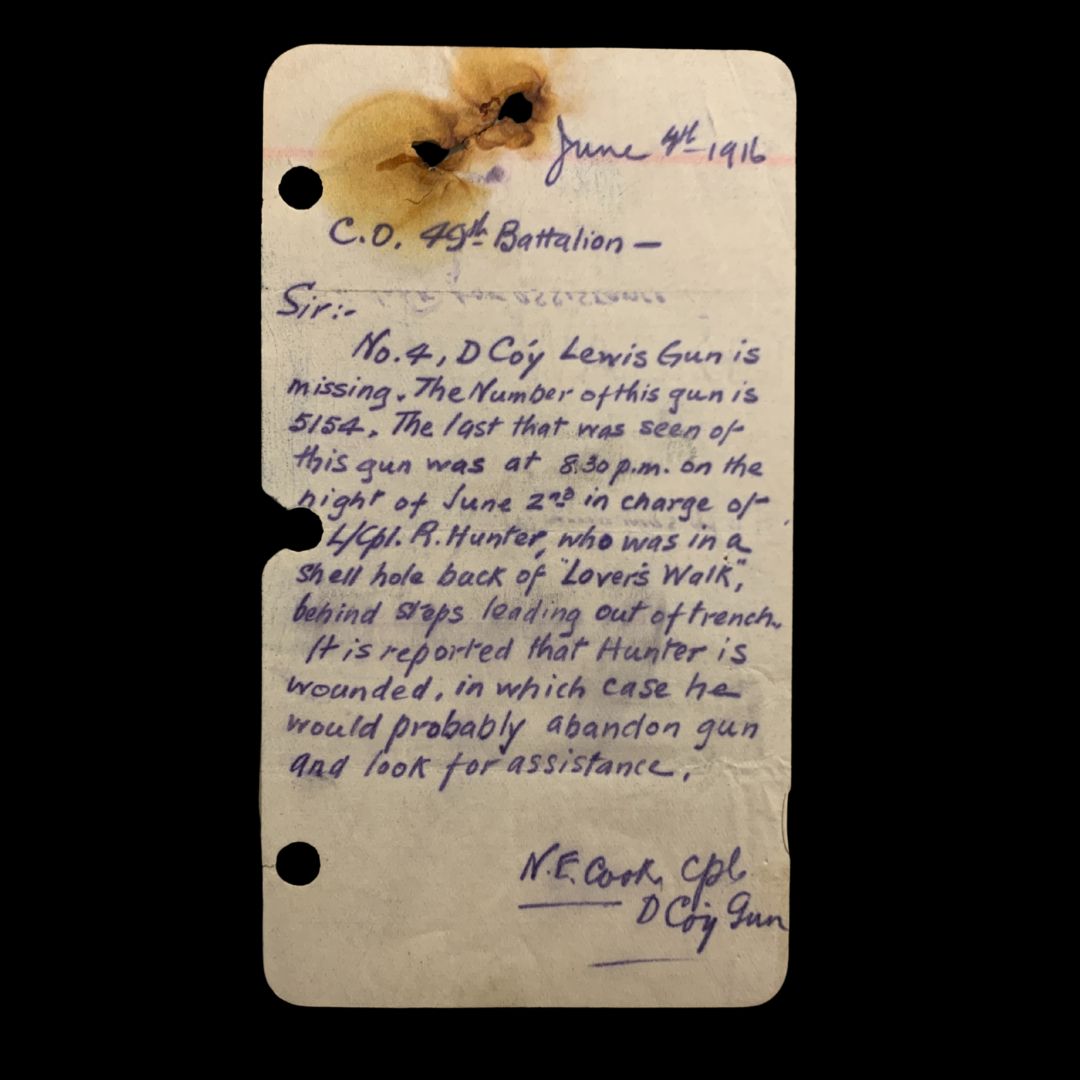 June 4th 1916
C.O. 49th Battalion —
Sir:-
No. 4, D Co'y Lewis Gun is
missing. The Number of this gun is
5154. The last that was seen of
this gun was at 8.30 p.m. on the
night of June 2nd in charge of
L/Cpl. R. Hunter, who was in a
shell hole back of "Lover's Walk",
behind steps leading out of trench.
It is reported that Hunter is
wounded, in which case he
would probably abandon gun
and look for assistance.
N.E. Cook, Cpl
D Co'y Gun